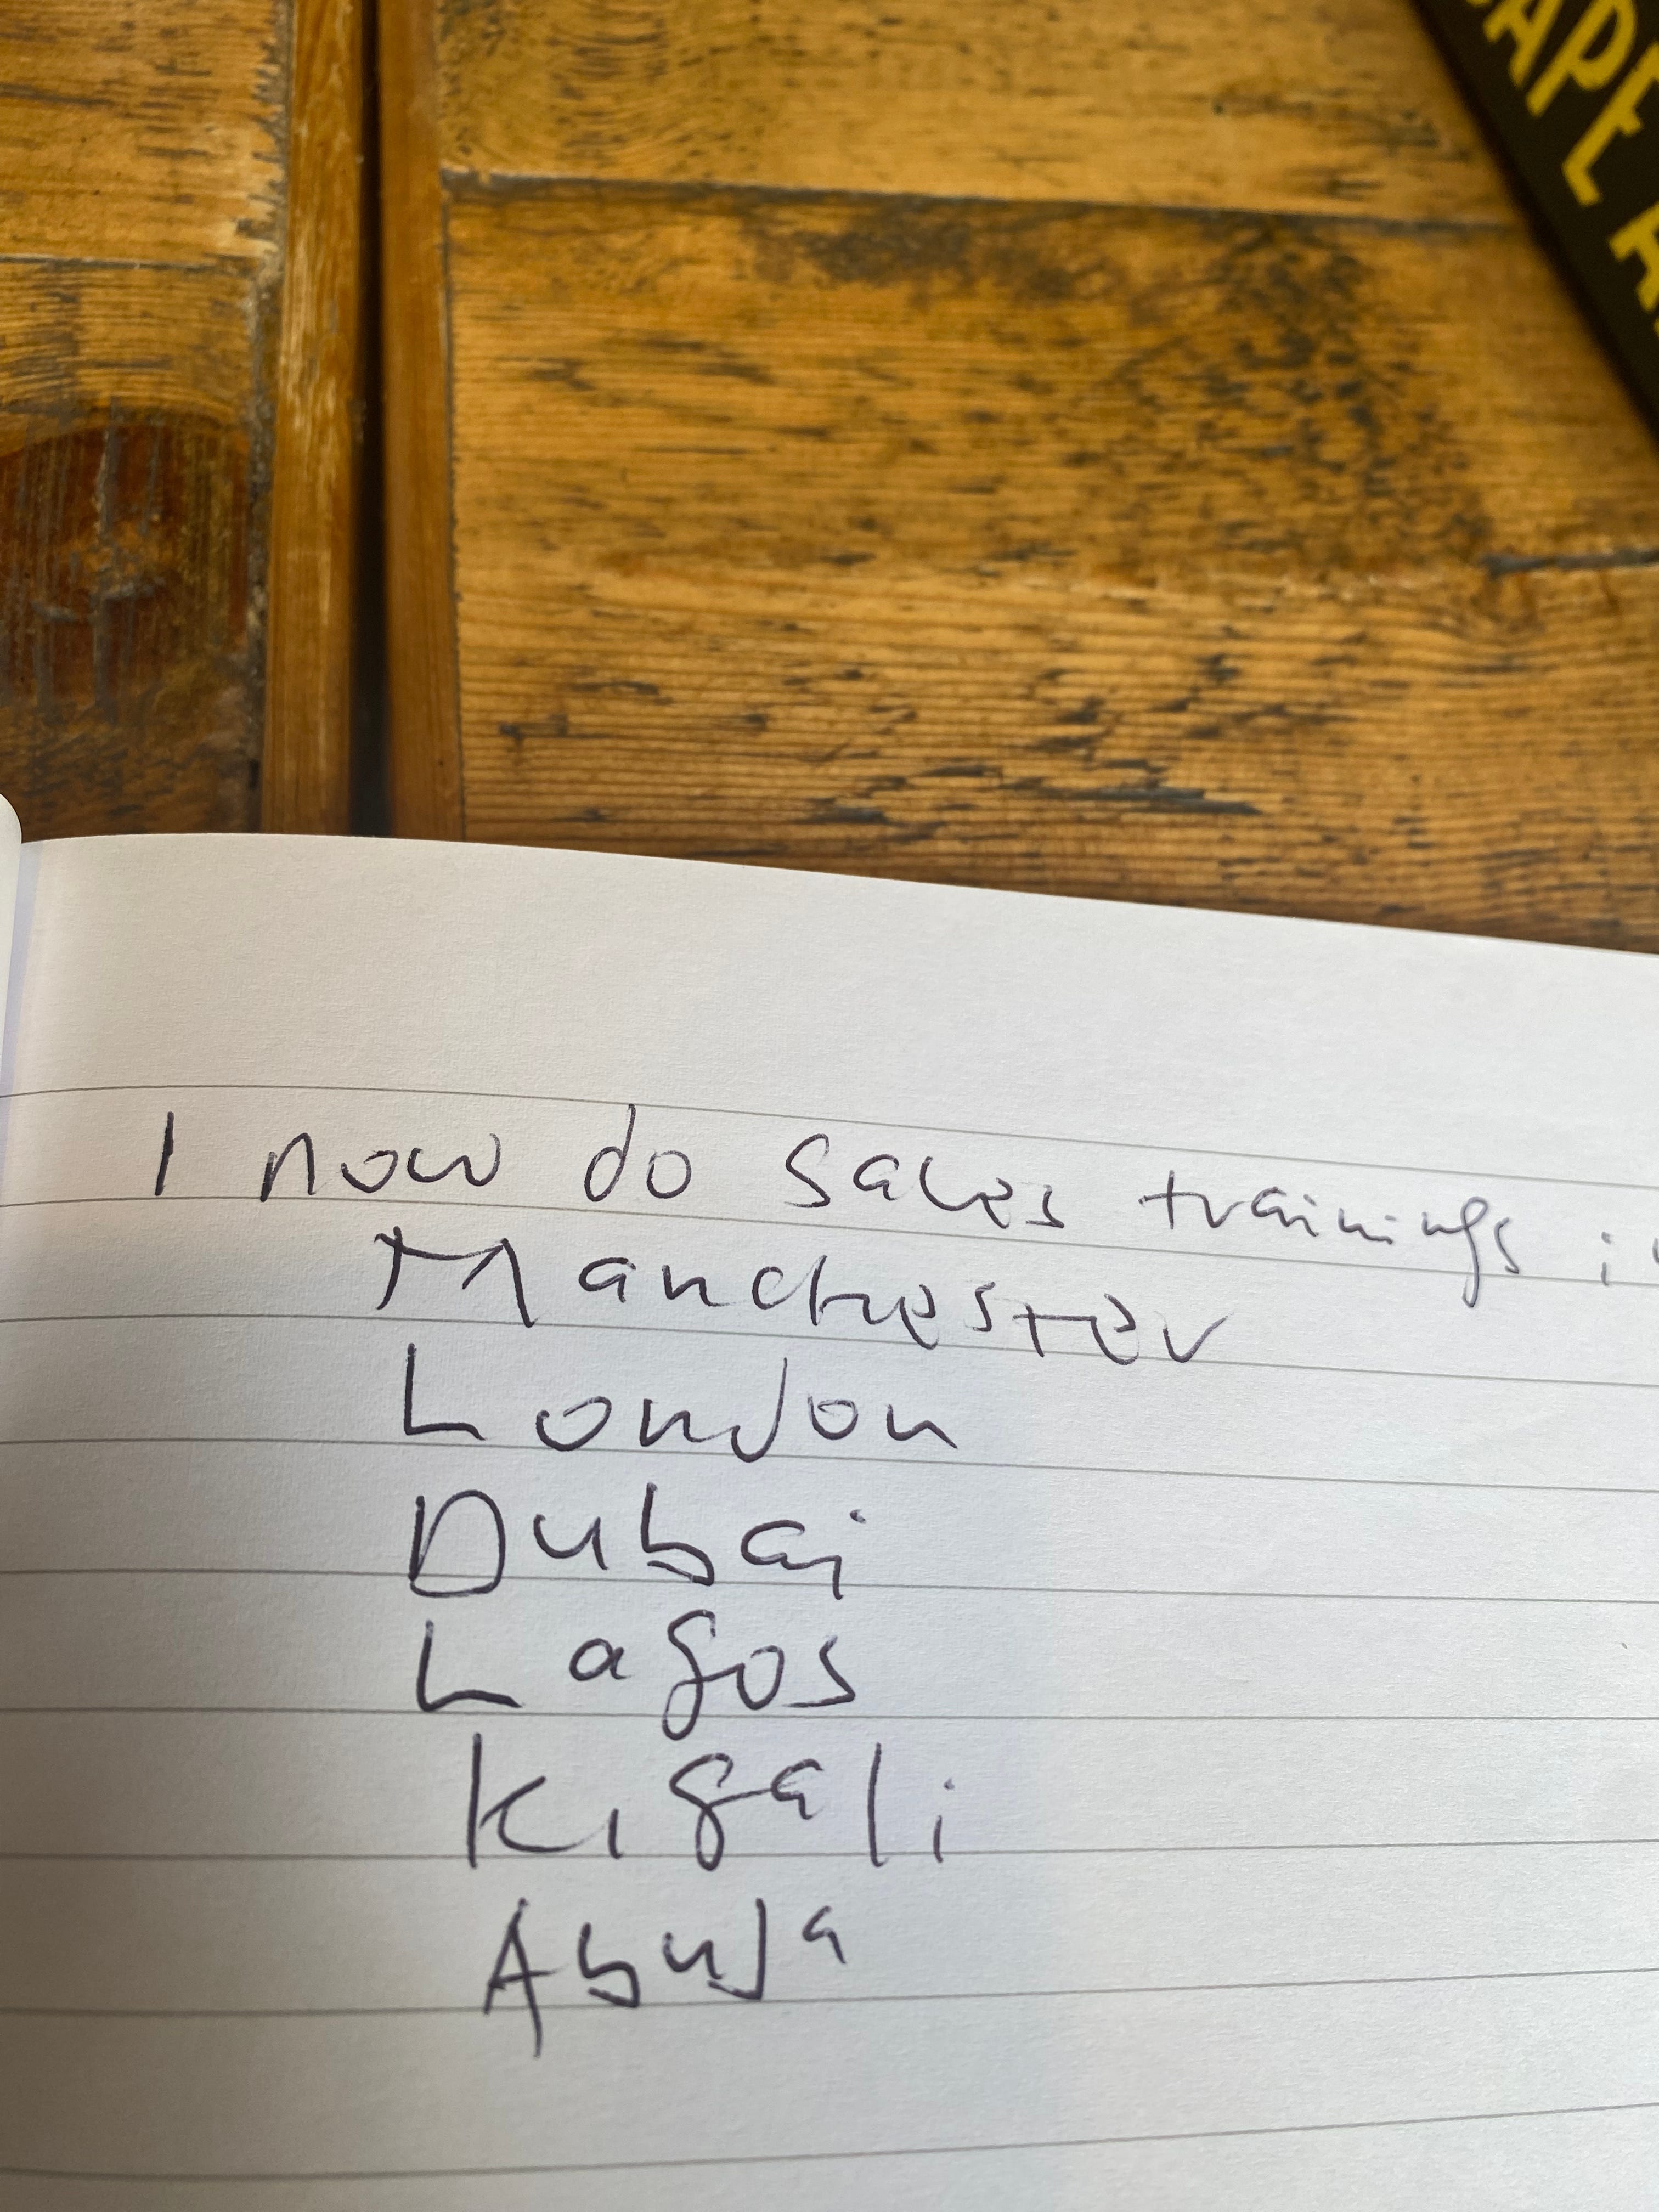 I now do sales trainings in
Manchester
London
Dubai
Lagos
Kigali
Abuja